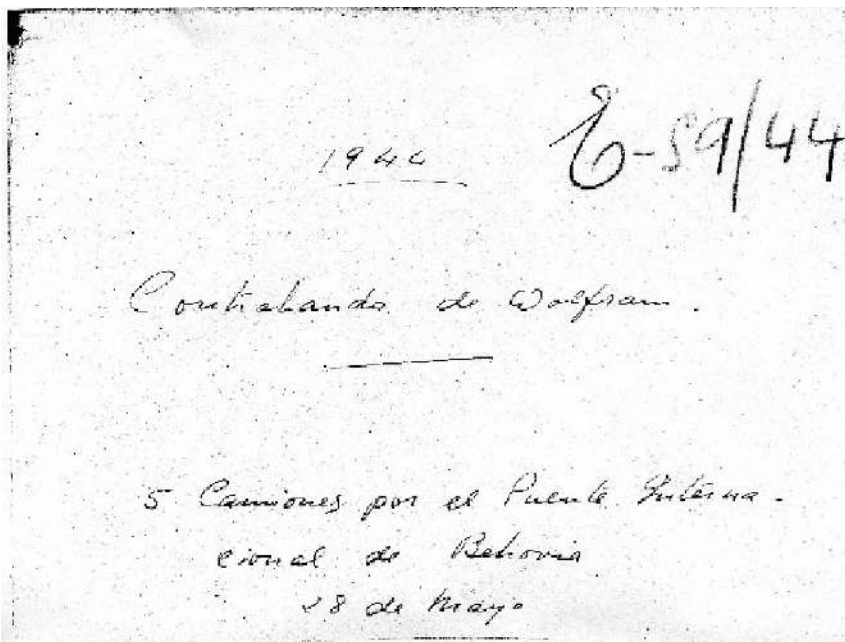 E-59/44
1944
Contrabando de Wolfram.
5 Camiones por el Puente Interna-
cional de Behovia
28 de Mayo